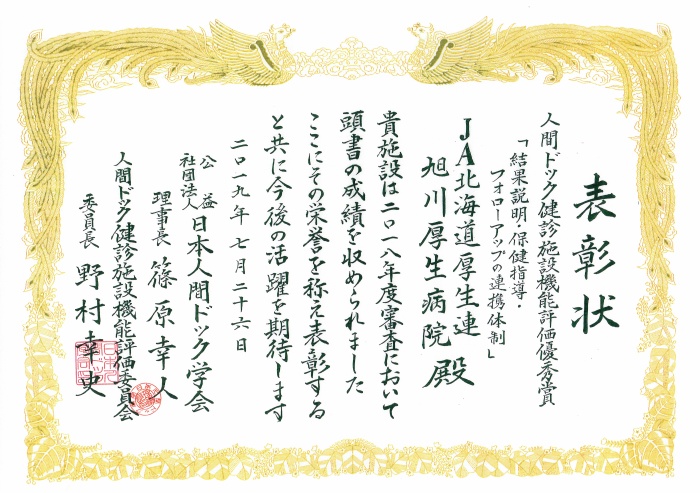 表彰状
人間ドック健診施設機能評価優秀賞
「結果説明・保健指導・
フォローアップの連携体制」
JA北海道厚生連
旭川厚生病院 殿
貴施設は二〇一八年度審査において
頭書の成績を収められました
ここにその栄誉を称え表彰する
と共に今後の活躍を期待します
二〇一九年七月二十六日
公益
社団法人 日本人間ドック学会
理事長 篠原幸人
人間ドック健診施設機能評価委員会
委員長 野村幸史